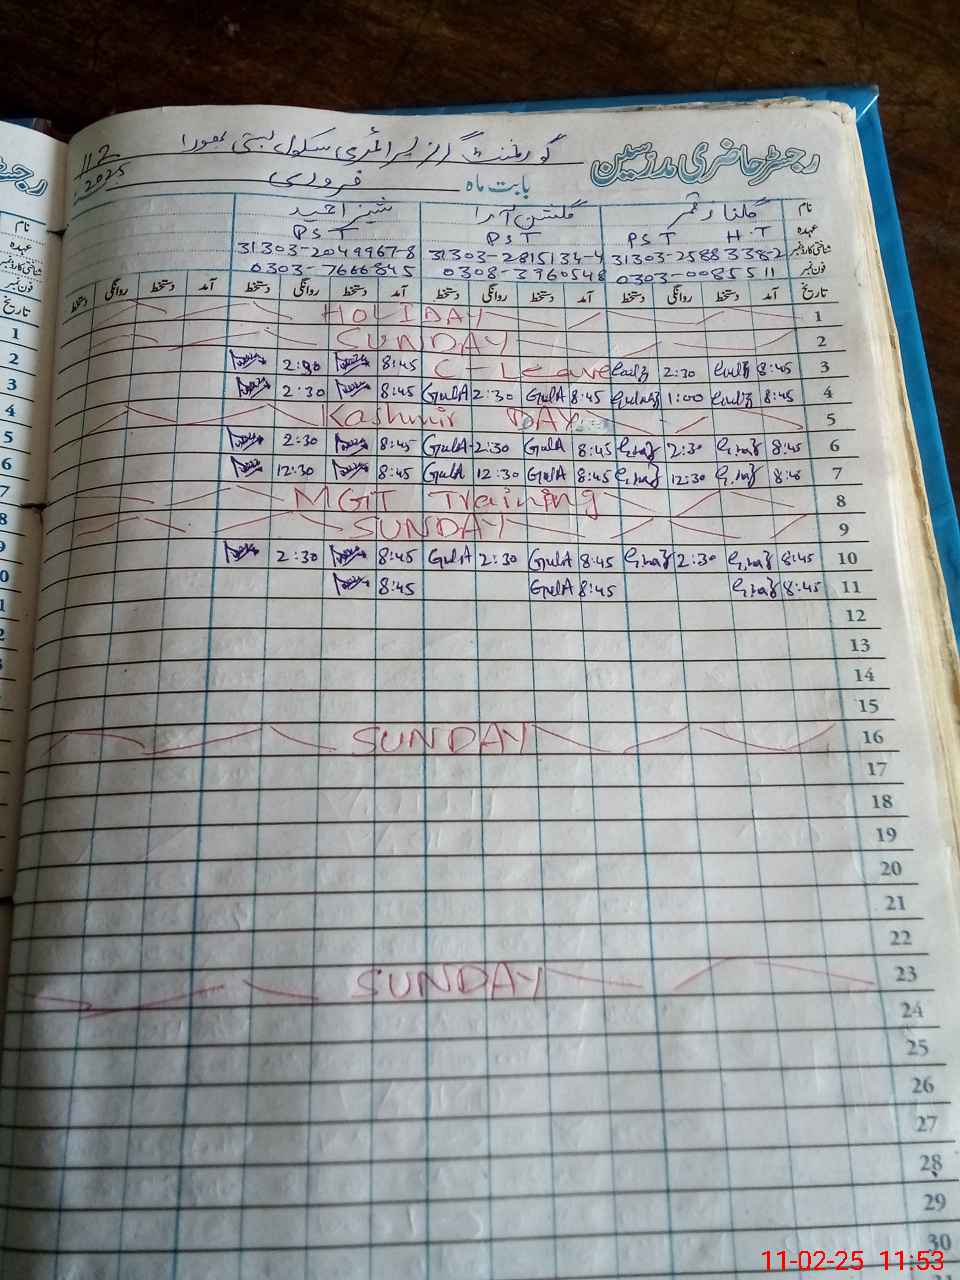 رجسٹر حاضری مدرسین گورنمنٹ گرلز پرائمری سکول بستی
بابت ماہ فروری 2025
نام گلناز آرا شبیر احمد
عہدہ PST H.T PST PST
شناختی کارڈ نمبر 31303-2588338-2 31303-2815134-4 31303-2049967-8
فون نمبر 0303-0085511 0308-3960548 0303-7666845
تاریخ آمد دستخط روانگی دستخط آمد دستخط روانگی دستخط آمد دستخط روانگی دستخط آمد دستخط روانگی دستخط
1 HOLIDAY
2 SUNDAY
3 8:45 2:30 C-Leave 8:45 2:30
4 8:45 1:00 8:45 GulA 2:30 GulA 8:45 2:30
5 Kashmir DAY
6 8:45 2:30 8:45 GulA 2:30 GulA 8:45 2:30
7 8:45 12:30 8:45 GulA 12:30 GulA 8:45 12:30
8 MGT Training
9 SUNDAY
10 8:45 2:30 8:45 GulA 2:30 GulA 8:45 2:30
11 8:45 8:45 GulA 8:45
12
13
14
15
16 SUNDAY
17
18
19
20
21
22
23 SUNDAY
24
25
26
27
28
29
30
11-02-25 11:53